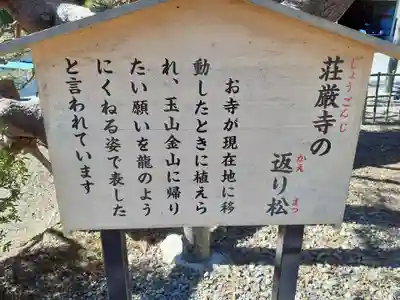 じょうごんじ
荘厳寺の
かえ まつ
返り松
お寺が現在地に移
動したときに植えら
れ、玉山金山に帰り
たい願いを龍のよう
にくねる姿で表した
と言われています